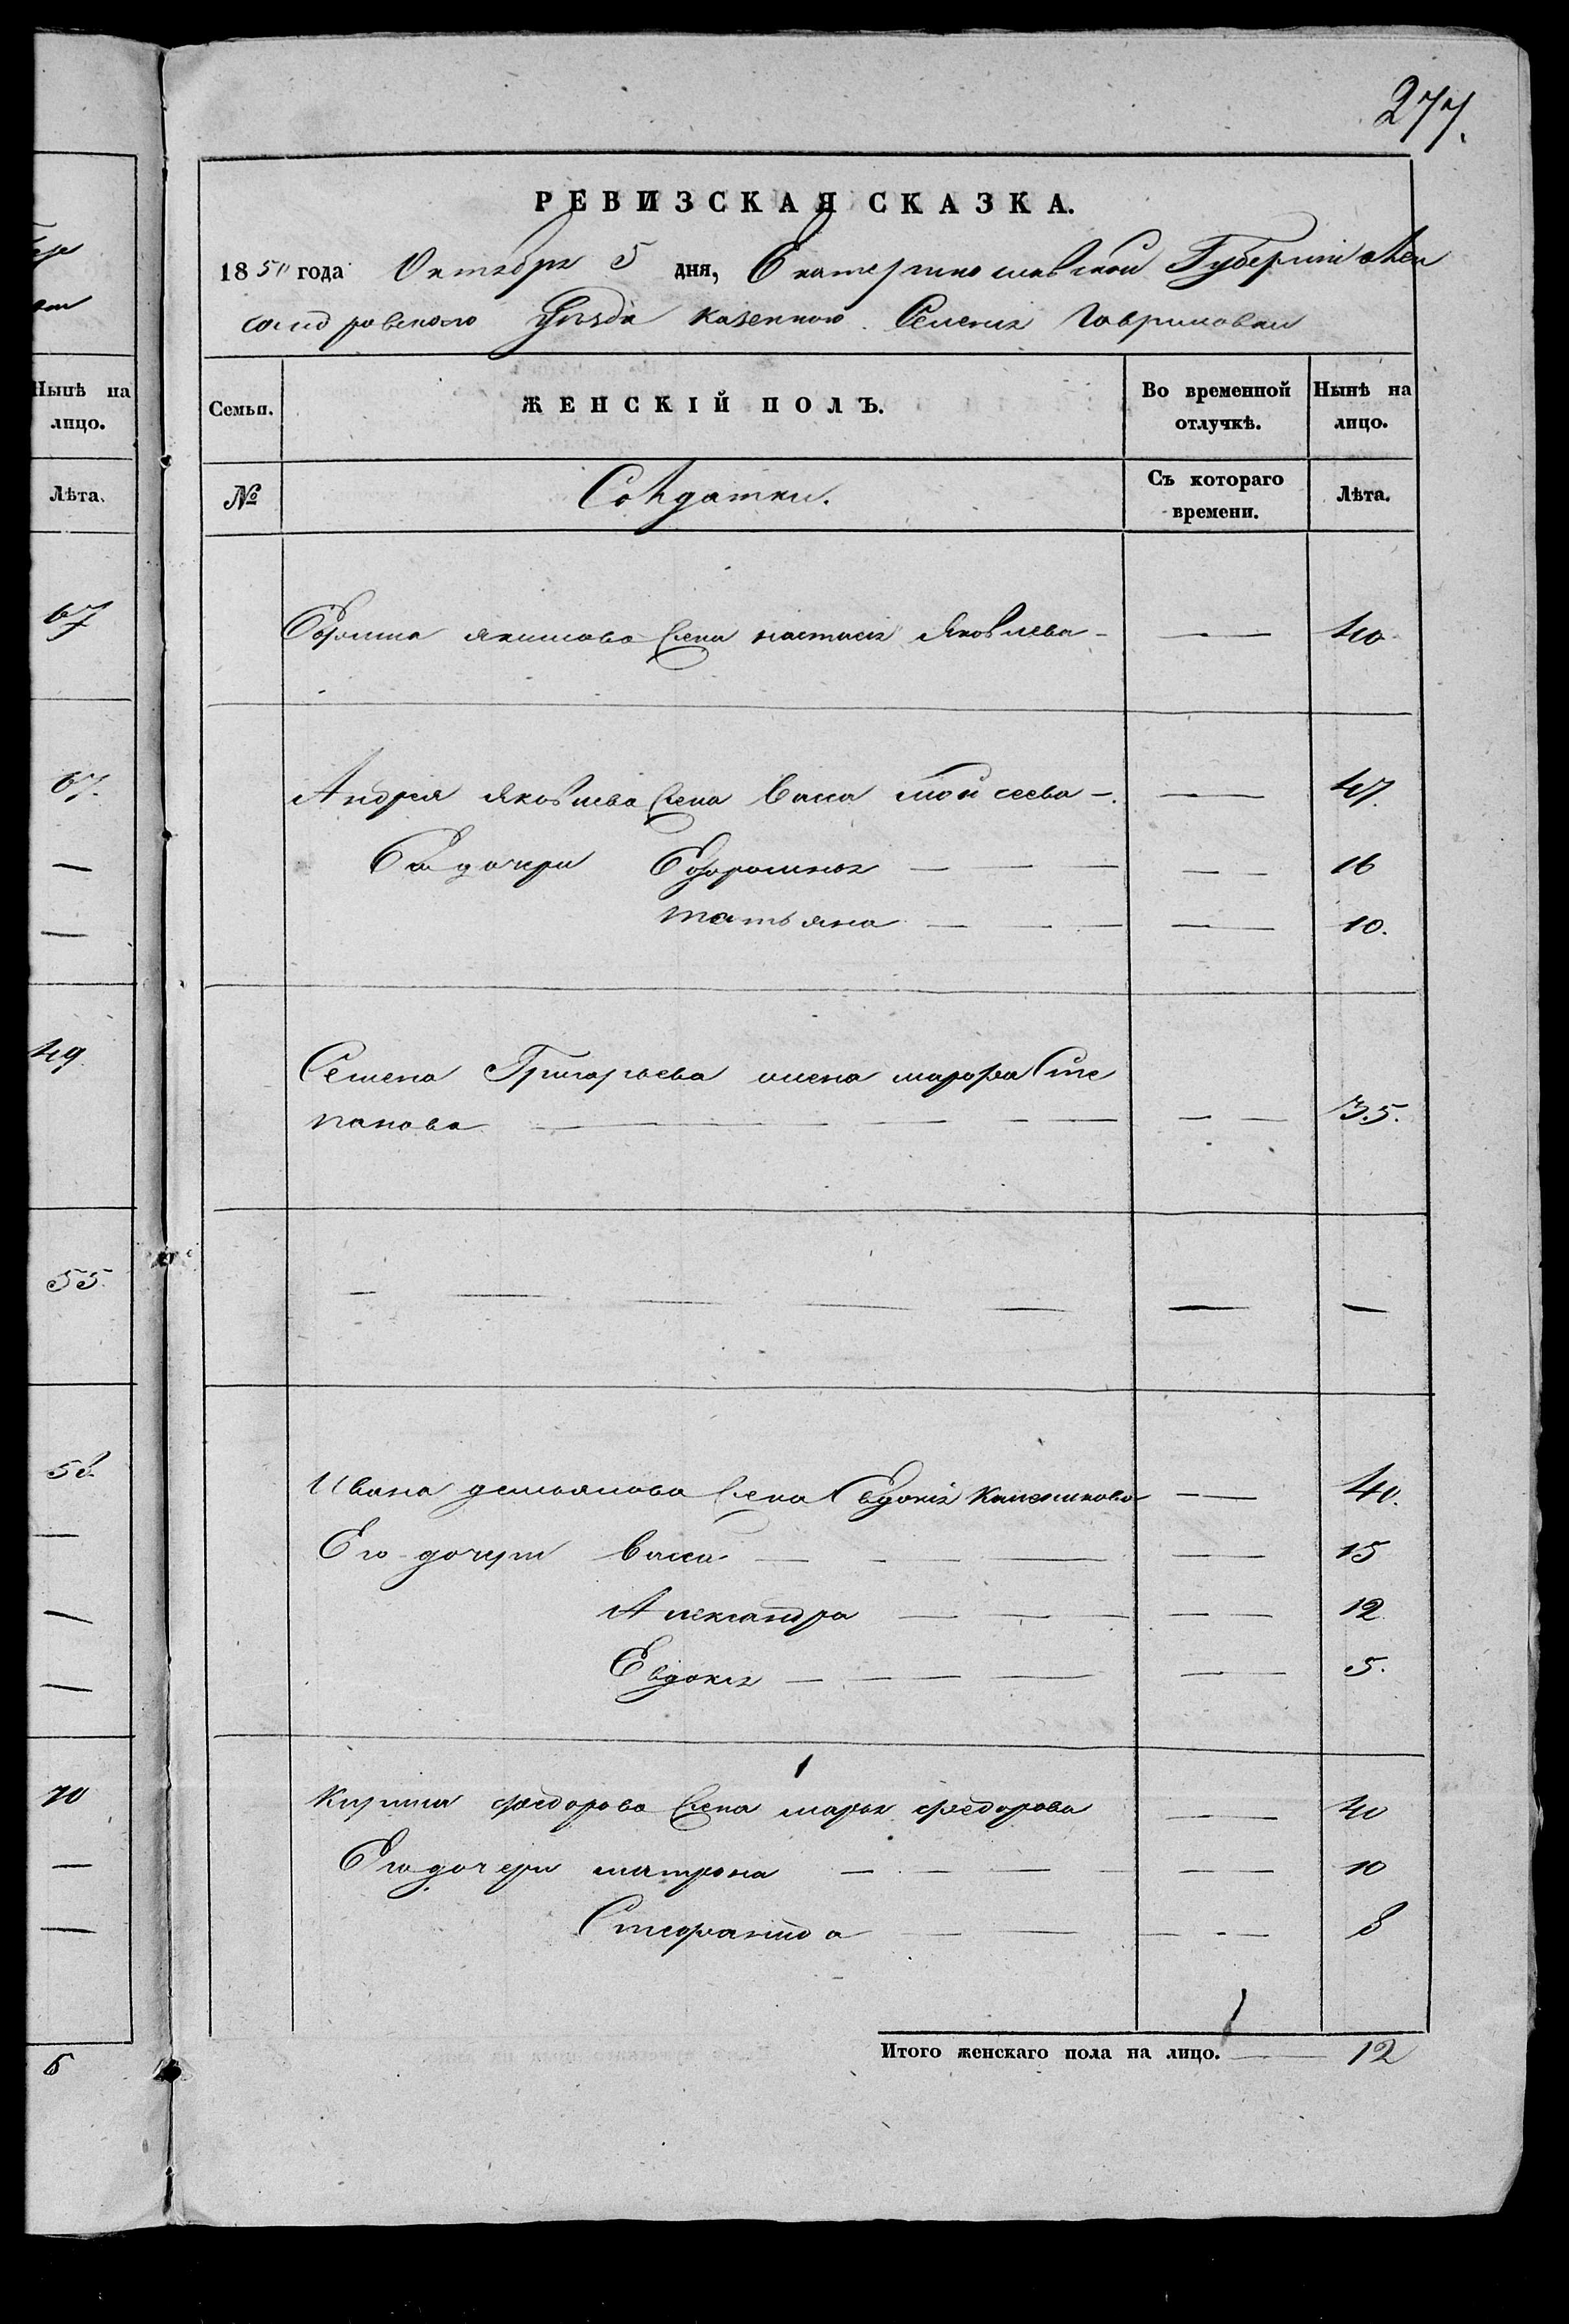 277.
РЕВИЗСКАЯ СКАЗКА.
1850 года Октября 5 дня, Екатеринославской Губернии Алек
сандровского Уезда казенного Селения Гавриловки
Семьи.
ЖЕНСКІЙ ПОЛЪ.
Во временной отлучкѣ.
Нынѣ на лицо.
№
Солдатки.
Съ котораго времени.
Лѣта.
Ефрема Якимова жена настасия Яковлева — — 40
Андрея Яковлева жена васа мойсеева — — 47.
Его дочери Ефросиния — — 16
татьяна — — 10.
Семена Григорьева жена марфа Сте
панова — — 35.
— — —
Ивана демьянова жена Евдокия — 40.
Его дочери васса — — 15
Александра — — 12
Евдокия — — 5.
Кирила федорова жена марья федорова — 40
Его дочери матрона — — 10
Стефанида — — 8
Итого женскаго пола на лицо. — 12
Нынѣ на
лицо.
Лѣта.
67
67.
—
—
49
55.
58.
—
—
—
70
—
—
6